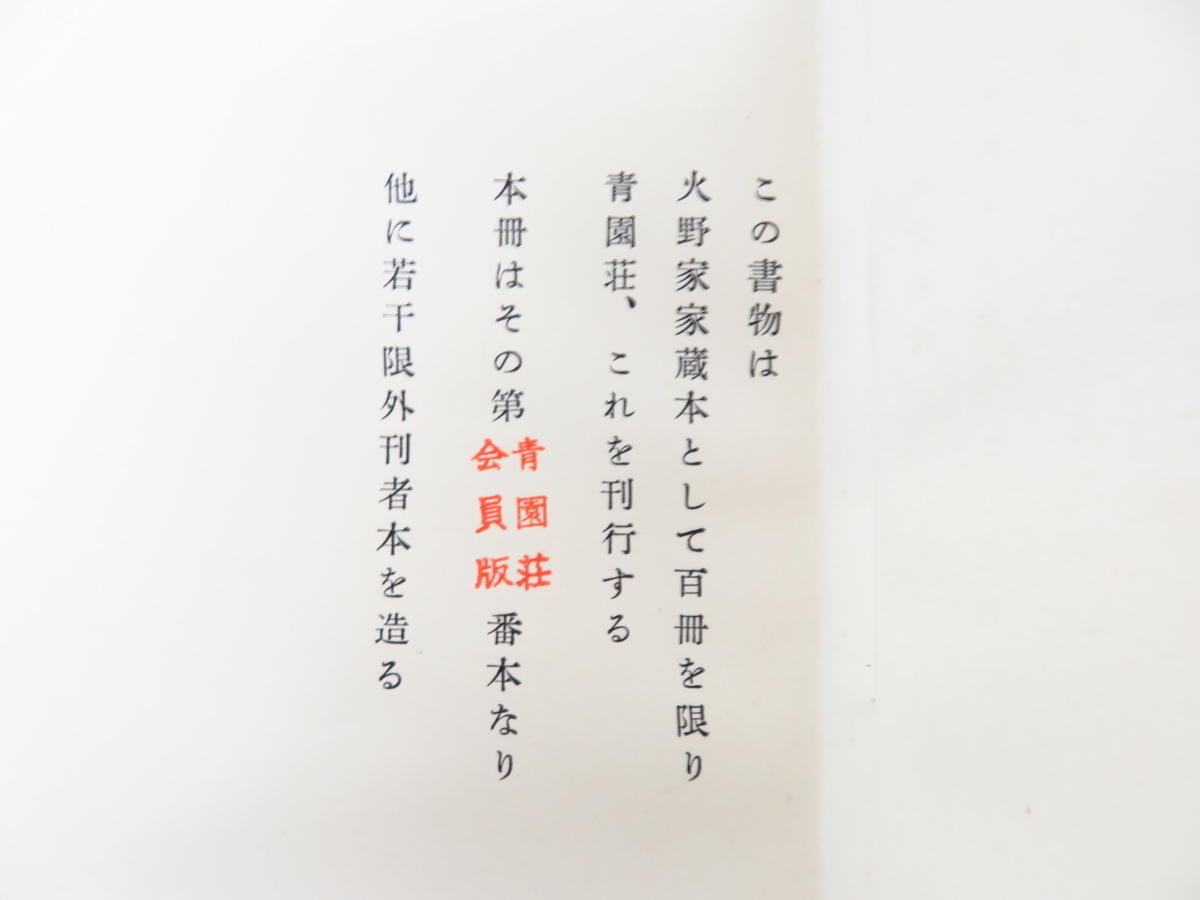 この書物は
火野家家蔵本として百冊を限り
青園荘、これを刊行する
本冊はその第青園荘会員版番本なり
他に若干限外刊者本を造る